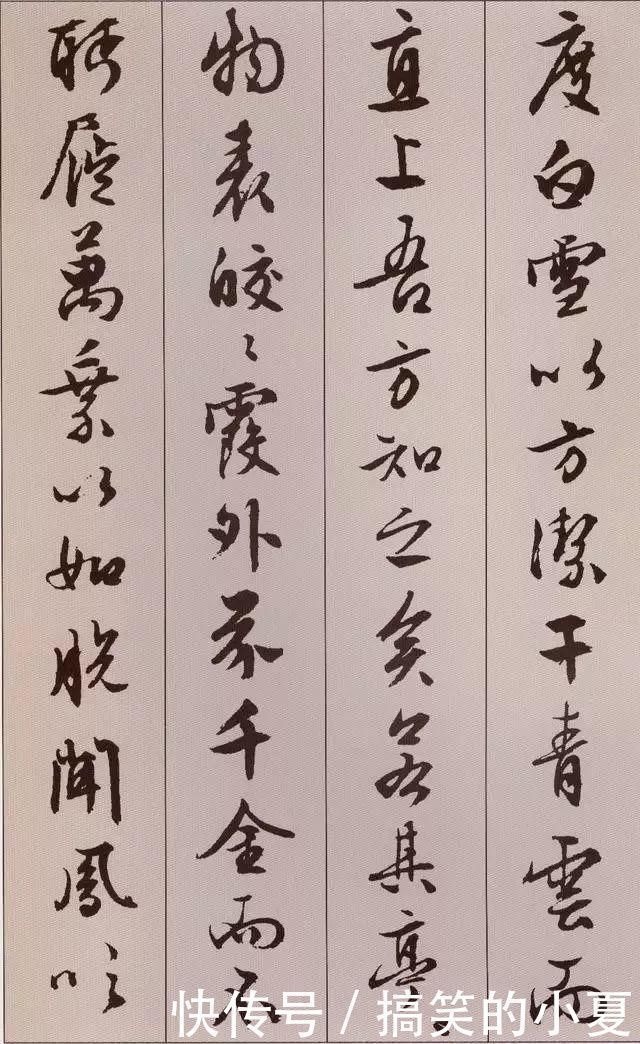 度白雪以方潔干青雲而
直上吾方知之矣若其亭
物表皎〻霞外芥千金而不
眄屣萬乘以如脫聞鳳吹
快传号 / 搞笑的小夏